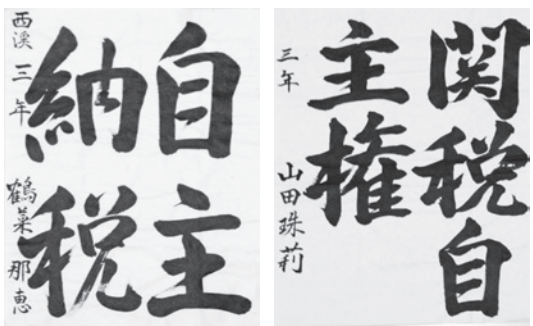 自主
納税
西溪 三年 鶴菓 那恵
関税自
主権
三年 山田珠莉